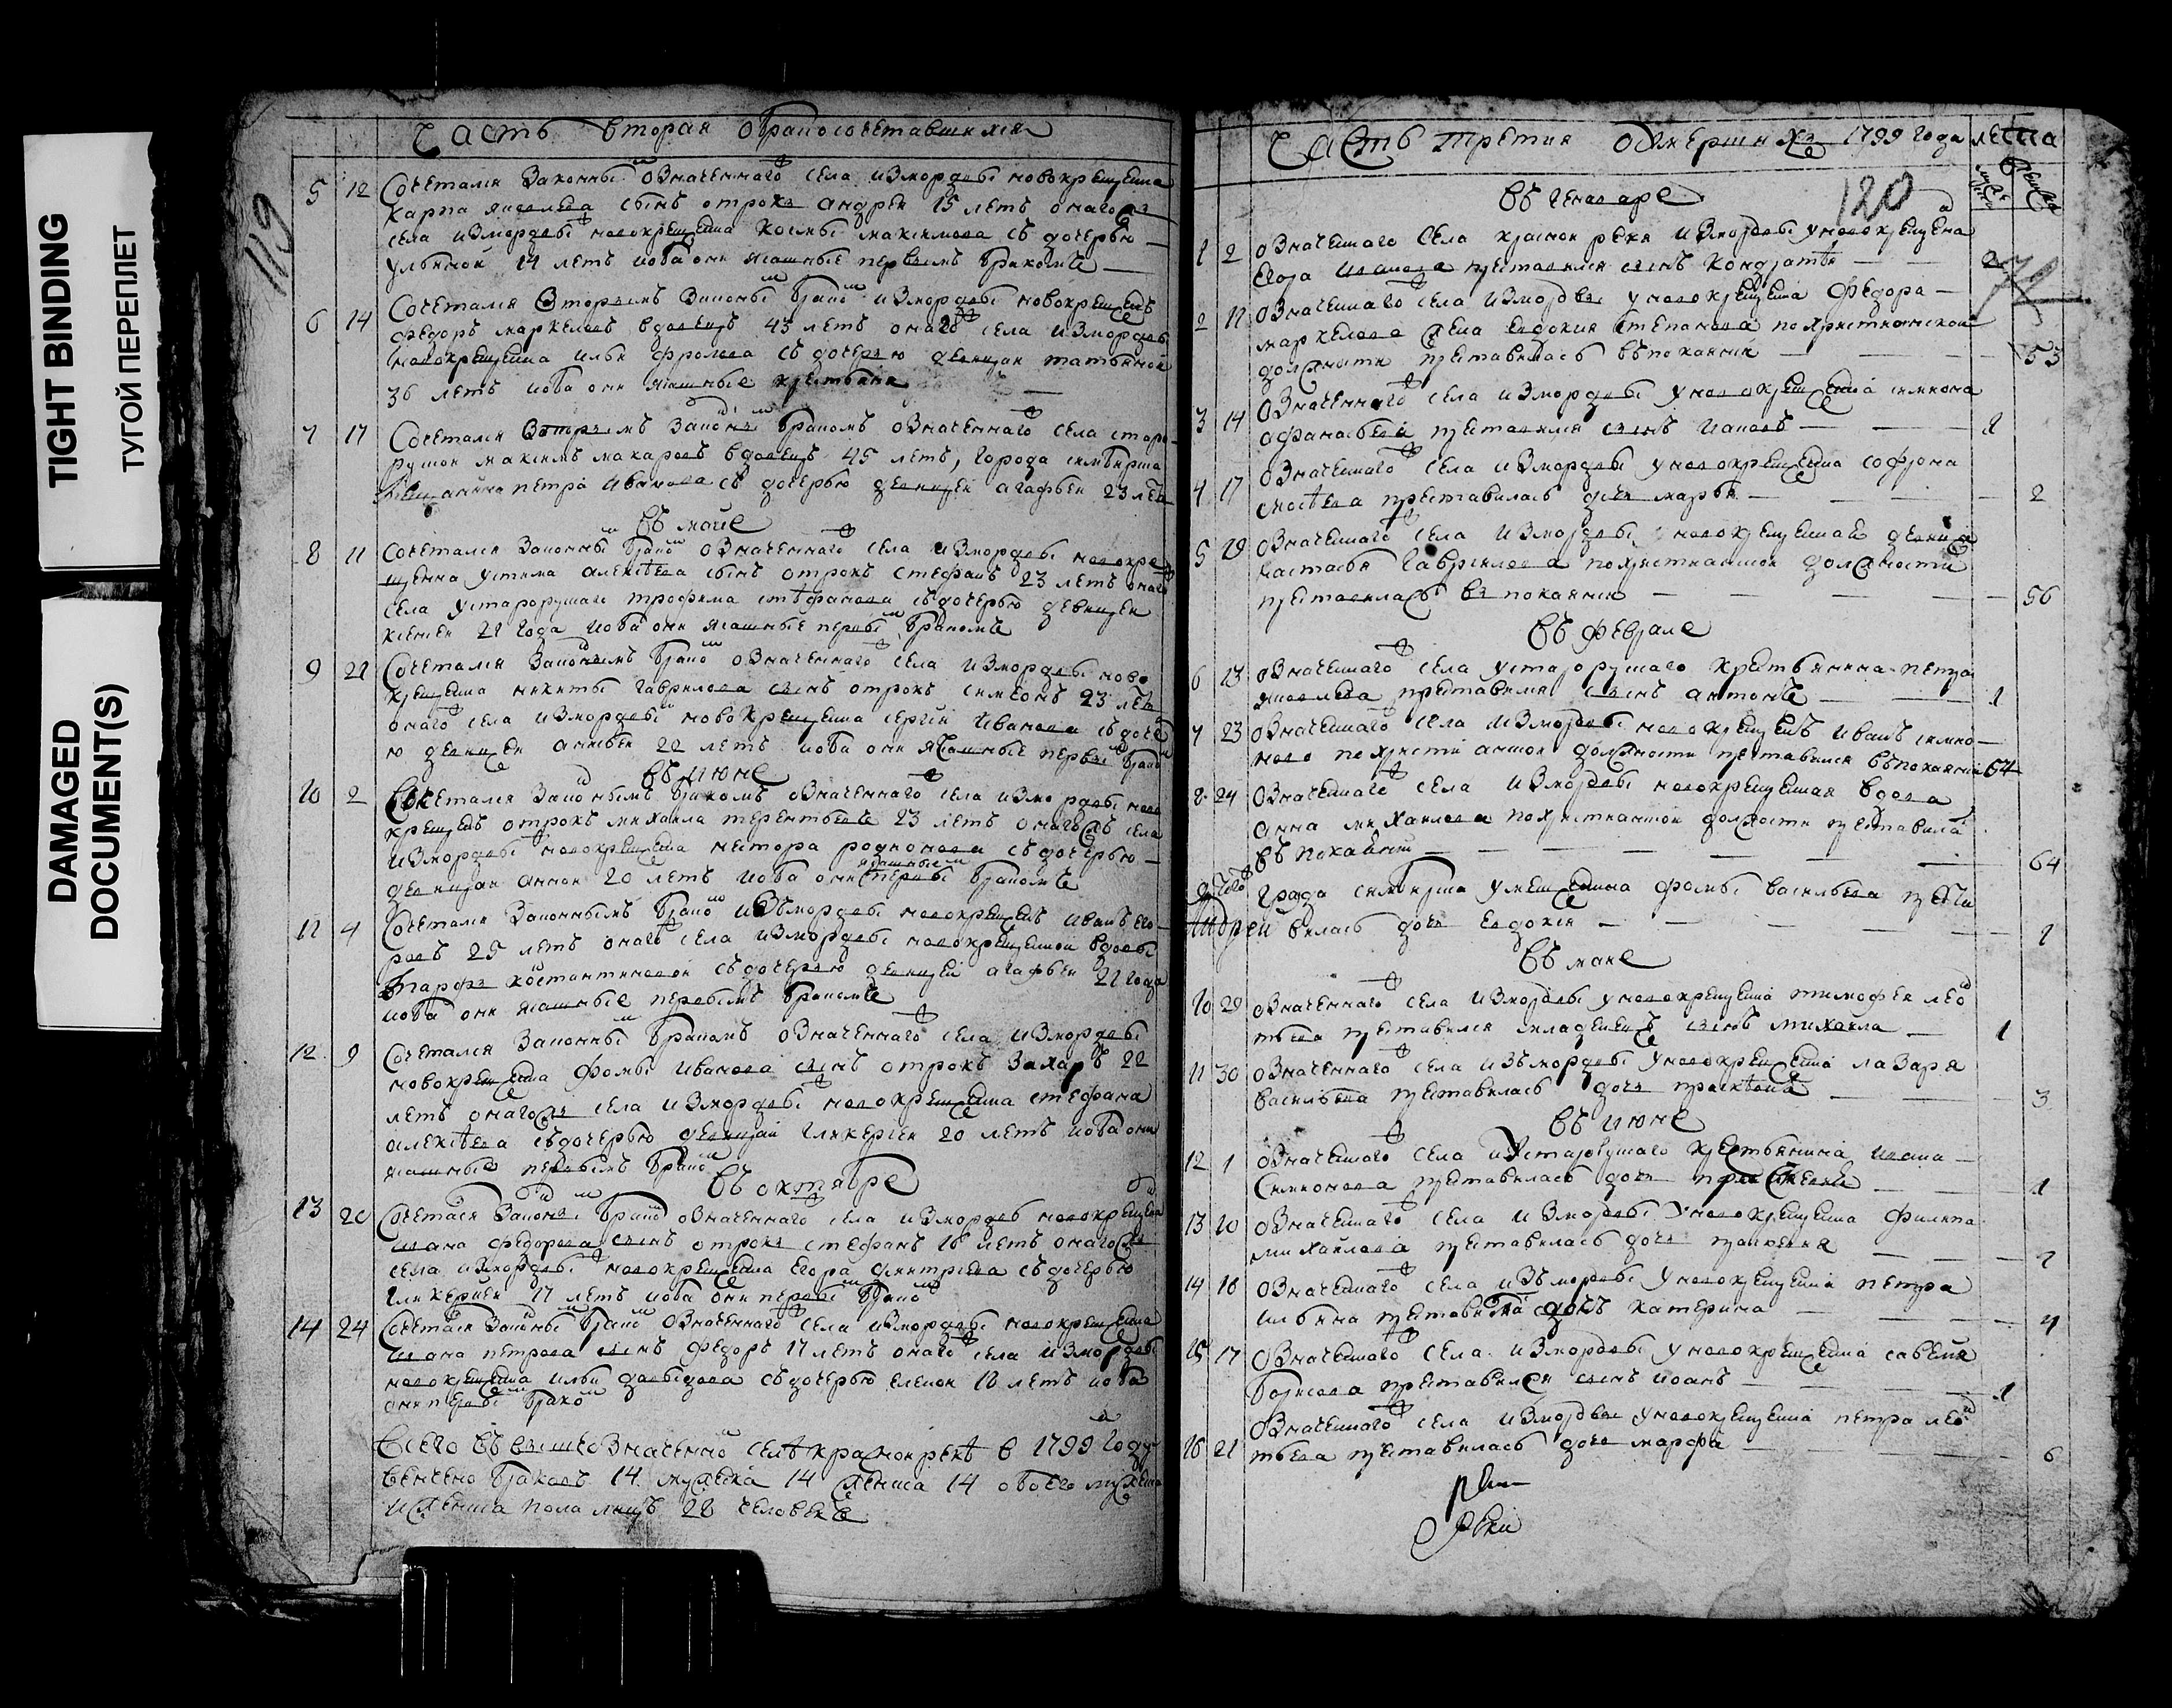 TIGHT BINDING
ТУГОЙ ПЕРЕПЛЕТ
DAMAGED
DOCUMENT(S)
119
Часть вторая о бракосочетавшихся
5 12 Сочетался законнымъ означеннаго села измордвы новокрещена
Карпа сынъ отрокъ андрей 15 летъ онаго жъ
села измордвы новокрещена Космы максимова съ дочерью
ульяной 14 летъ иоба они ясашные первымъ бракомъ
6 14 Сочетался вторымъ законнымъ бракомъ измордвы новокрещенъ
федоръ маркеловъ вдовецъ 43 летъ онаго села измордвы
новокрещена ильи фролова съ дочерью девицей татьяной
36 летъ иоба они ясашные крестьяня
7 17 Сочетался вторымъ законнымъ бракомъ означеннаго села старо
рушой максимъ макаровъ вдовецъ 45 летъ, города симбирска
мещанина петра иванова съ дочерью девицей агафьей 23 лета
въ маие
8 11 Сочетался законнымъ бракомъ означеннаго села измордвы новокре
щенна устима алексѣева сынъ отрокъ стефанъ 23 летъ онаго
села устарорушаго трофима стефанова съ дочерью девицей
ксенией 21 года иоба они ясашные первымъ бракомъ
9 21 Сочетался законнымъ бракомъ означеннаго села измордвы ново
крещена никиты гаврилова сынъ отрокъ симеонъ 23 летъ
онаго села измордвы новокрещена сергея иванова съ дочер
ю девицей 22 летъ иоба они ясашные первымъ бракомъ
въ июне
10 2 Сочетался законнымъ бракомъ означеннаго села измордвы ново
крещенъ отрокъ михаила терентьевъ 23 летъ онаго жъ села
измордвы новокрещена родионова съ дочерью
девицей анной 20 летъ иоба они ясашные первымъ бракомъ
11 4 Сочетался законнымъ бракомъ изъмордвы новокрещенъ иванъ его
ровъ 25 летъ онаго села измордвы новокрещенной вдовы
марфы костантиновой съ дочерью девицей агафьей 21 года
иоба они ясашные первымъ бракомъ
12 9 Сочетался законнымъ бракомъ означеннаго села измордвы
новокрещена фомы иванова сынъ отрокъ захаръ 22
летъ онагожъ села измордвы новокрещена стефана
алексѣева съ дочерью девицей гликерией 20 летъ иоба они
ясашные первымъ бракомъ
въ октябре
13 20 Сочетался законнымъ бракомъ означеннаго села измордвы новокрещена
ивана федорова сынъ отрокъ стефанъ 18 летъ онагожъ
села измордвы новокрещена егора дмитриева съ дочерью
гликерией 17 летъ иоба они первымъ бракомъ
14 24 Сочетался законнымъ бракомъ означеннаго села измордвы новокрещена
ивана петрова сынъ федоръ 17 летъ онаго села измордвы
новокрещена ильи давыдова съ дочерью еленой 18 летъ иоба
они первымъ бракомъ
Всего въ вышеозначенномъ селѣ красной рекѣ в 1799 году
венчено браковъ 14 мужеска 14 женска 14 обоего мужеска
и женска пола лицъ 28 человекъ
Часть третия о умершихъ 1799 года лета
120
въ генваре
1 2 означеннаго села красной реки измордвы у новокрещена
егора иванова преставился сынъ кондратей
2 11 означеннаго села измордвы у новокрещена федора
маркелова жена евдокия степанова по християнской
должности преставилась въ покаянии 53
3 14 означеннаго села измордвы у новокрещена симиона
афанасьева преставился сынъ 1
4 17 означеннаго села измордвы у новокрещена софрона
преставилась дочь марья 2
5 29 означеннаго села измордвы новокрещенная девица
настасья гаврилова по християнской должности
преставилась въ покаянии 56
въ феврале
6 13 означеннаго села устарорушаго крестьянина петра
преставился сынъ антонъ 1
7 23 означеннаго села измордвы новокрещенъ иванъ симио
новъ по християнской должности преставился въ покаянии 64
8 24 означеннаго села измордвы новокрещенная вдова
анна михаилова по християнской должности преставила
въ покаянии 64
града симбирска у мещанина фомы васильева преста
вилась дочь евдокия 1
въ маие
10 29 означеннаго села измордвы у новокрещена тимофея лео
тьева преставился младенецъ сынъ михаила 1
11 30 означеннаго села изъмордвы у новокрещена лазаря
васильева преставилась дочь 3
въ июне
12 1 означеннаго села устарорушаго крестьянина ивана
симионова преставилась дочь 1
13 10 означеннаго села измордвы у новокрещена филипа
михайлова преставилась дочь
14 16 означеннаго села изъмордвы у новокрещена петра
ильина преставилась дочь катерина 4
15 17 означеннаго села измордвы у новокрещена савелия
борисова преставился сынъ иоанъ 1
16 21 означеннаго села измордвы у новокрещена петра лео
тьева преставилась дочь марфа 6